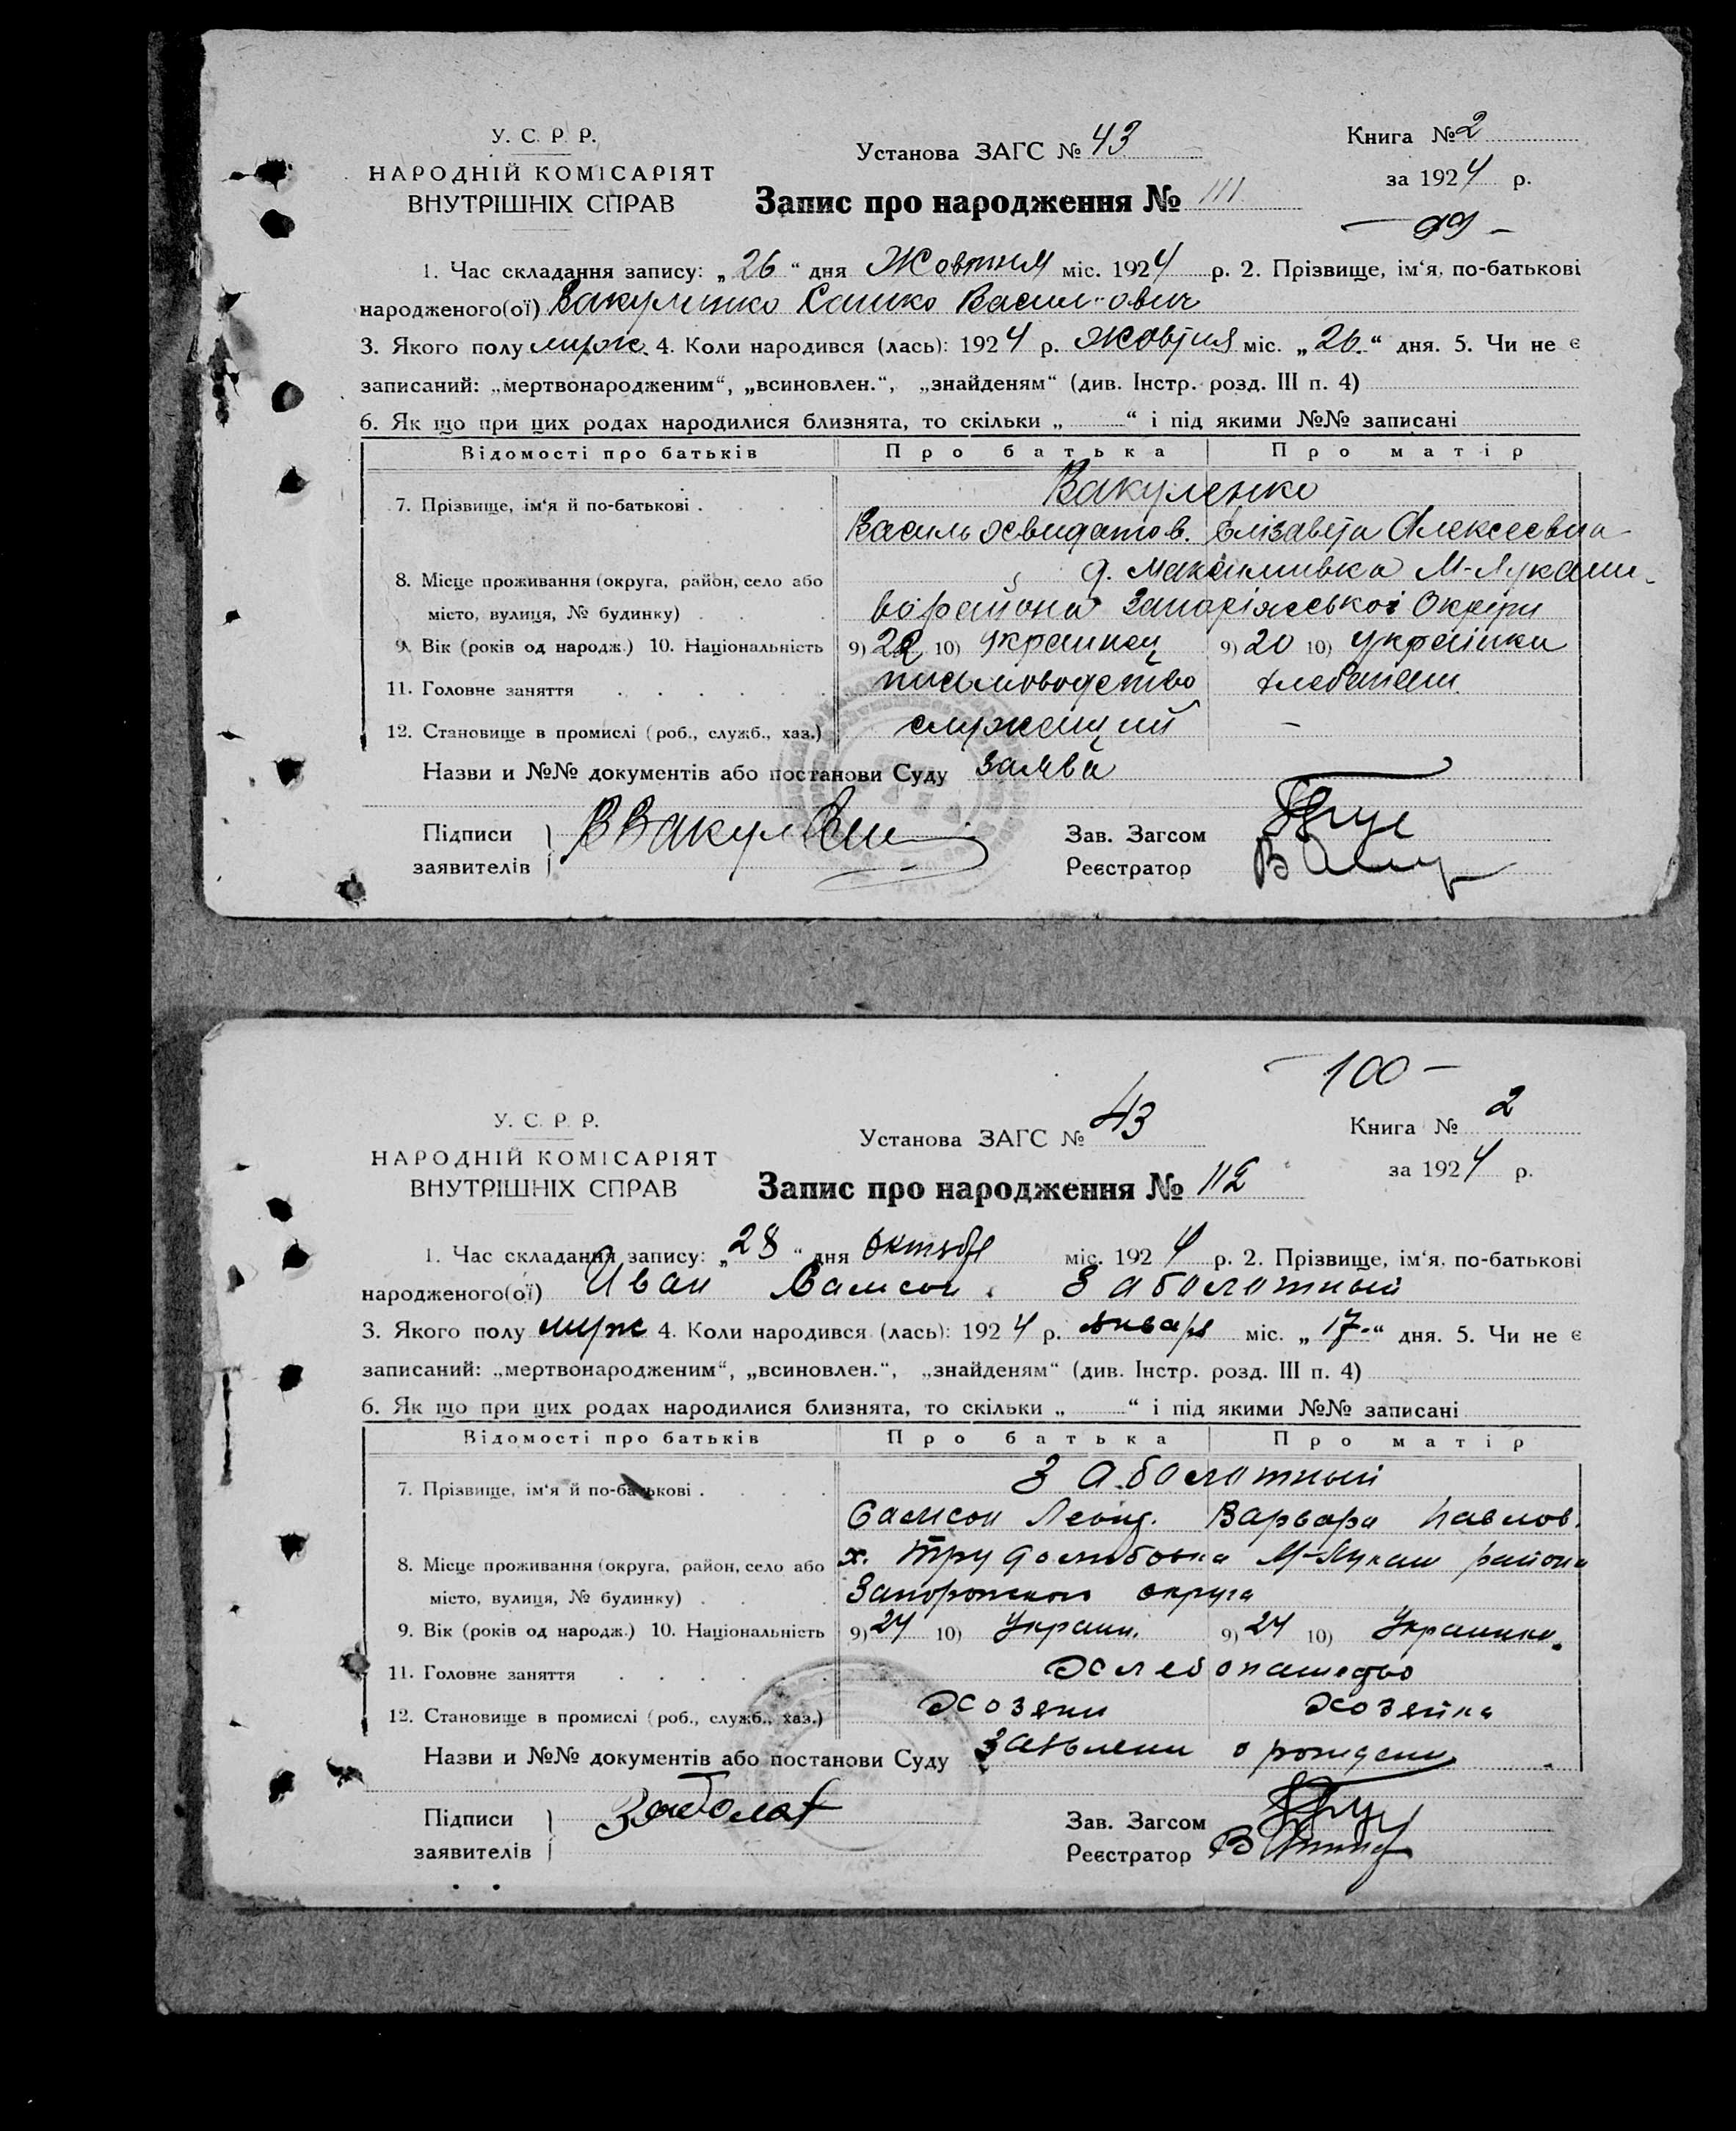 У. С. Р. Р.
НАРОДНІЙ КОМІСАРІЯТ
ВНУТРІШНІХ СПРАВ
Установа ЗАГС № 43
Запис про народження № 111
Книга № 2
за 1924 р.
— 99 —
1. Час складання запису: „26“ дня Жовтня міс. 1924 р. 2. Прізвище, ім‘я, по-батькові
народженого(ої) Вакуленко Сашко Васильович
3. Якого полу муж. 4. Коли народився (лась): 1924 р. Жовтня міс. „26.“ дня. 5. Чи не є
записаний: „мертвонародженим“, „всиновлен.“, „знайденям“ (див. Інстр. розд. III п. 4)
6. Як що при цих родах народилися близнята, то скільки „ “ і під якими №№ записані
Відомості про батьків Про батька Про матір
7. Прізвище, ім‘я й по-батькові . Вакуленко
Василь Елізавета Алексеевна
8. Місце проживання (округа, район, село або д. Максимивка М-Лукаши-
місто, вулиця, № будинку) . района Запоріжськоі Округи
9. Вік (років од народж.) 10. Національність 9) 22 10) Украинец 9) 20 10) Українка
11. Головне заняття письмоводство хлебопаш.
12. Становище в промислі (роб., служб., хаз.) служащий –
Назви и №№ документів або постанови Суду заява
Підписи
заявителів
В Вакулен
Зав. Загсом
Реєстратор
— 100 —
У. С. Р. Р.
НАРОДНІЙ КОМІСАРІЯТ
ВНУТРІШНІХ СПРАВ
Установа ЗАГС № 43
Запис про народження № 112
Книга № 2
за 1924 р.
1. Час складання запису: „28“ дня октябр міс. 1924 р. 2. Прізвище, ім‘я, по-батькові
народженого(ої) Иван Самсон. Заболотный
3. Якого полу муж 4. Коли народився (лась): 1924 р. января міс. „17.“ дня. 5. Чи не є
записаний: „мертвонародженим“, „всиновлен.“, „знайденям“ (див. Інстр. розд. III п. 4)
6. Як що при цих родах народилися близнята, то скільки „ “ і під якими №№ записані
Відомості про батьків Про батька Про матір
7. Прізвище, ім‘я й по-батькові . Заболотный
Самсон Леонд. Варвара Павлов.
8. Місце проживання (округа, район, село або х. Трудолюбовка М-Лукаш района
місто, вулиця, № будинку) . Запорожского округа
9. Вік (років од народж.) 10. Національність 9) 24 10) Украин. 9) 24 10) Украинка.
11. Головне заняття Хлебопашество
12. Становище в промислі (роб., служб., хаз.) Хозяин Хозяйка
Назви и №№ документів або постанови Суду Заявлени о рождени
Підписи
заявителів
Заболот
Зав. Загсом
Реєстратор